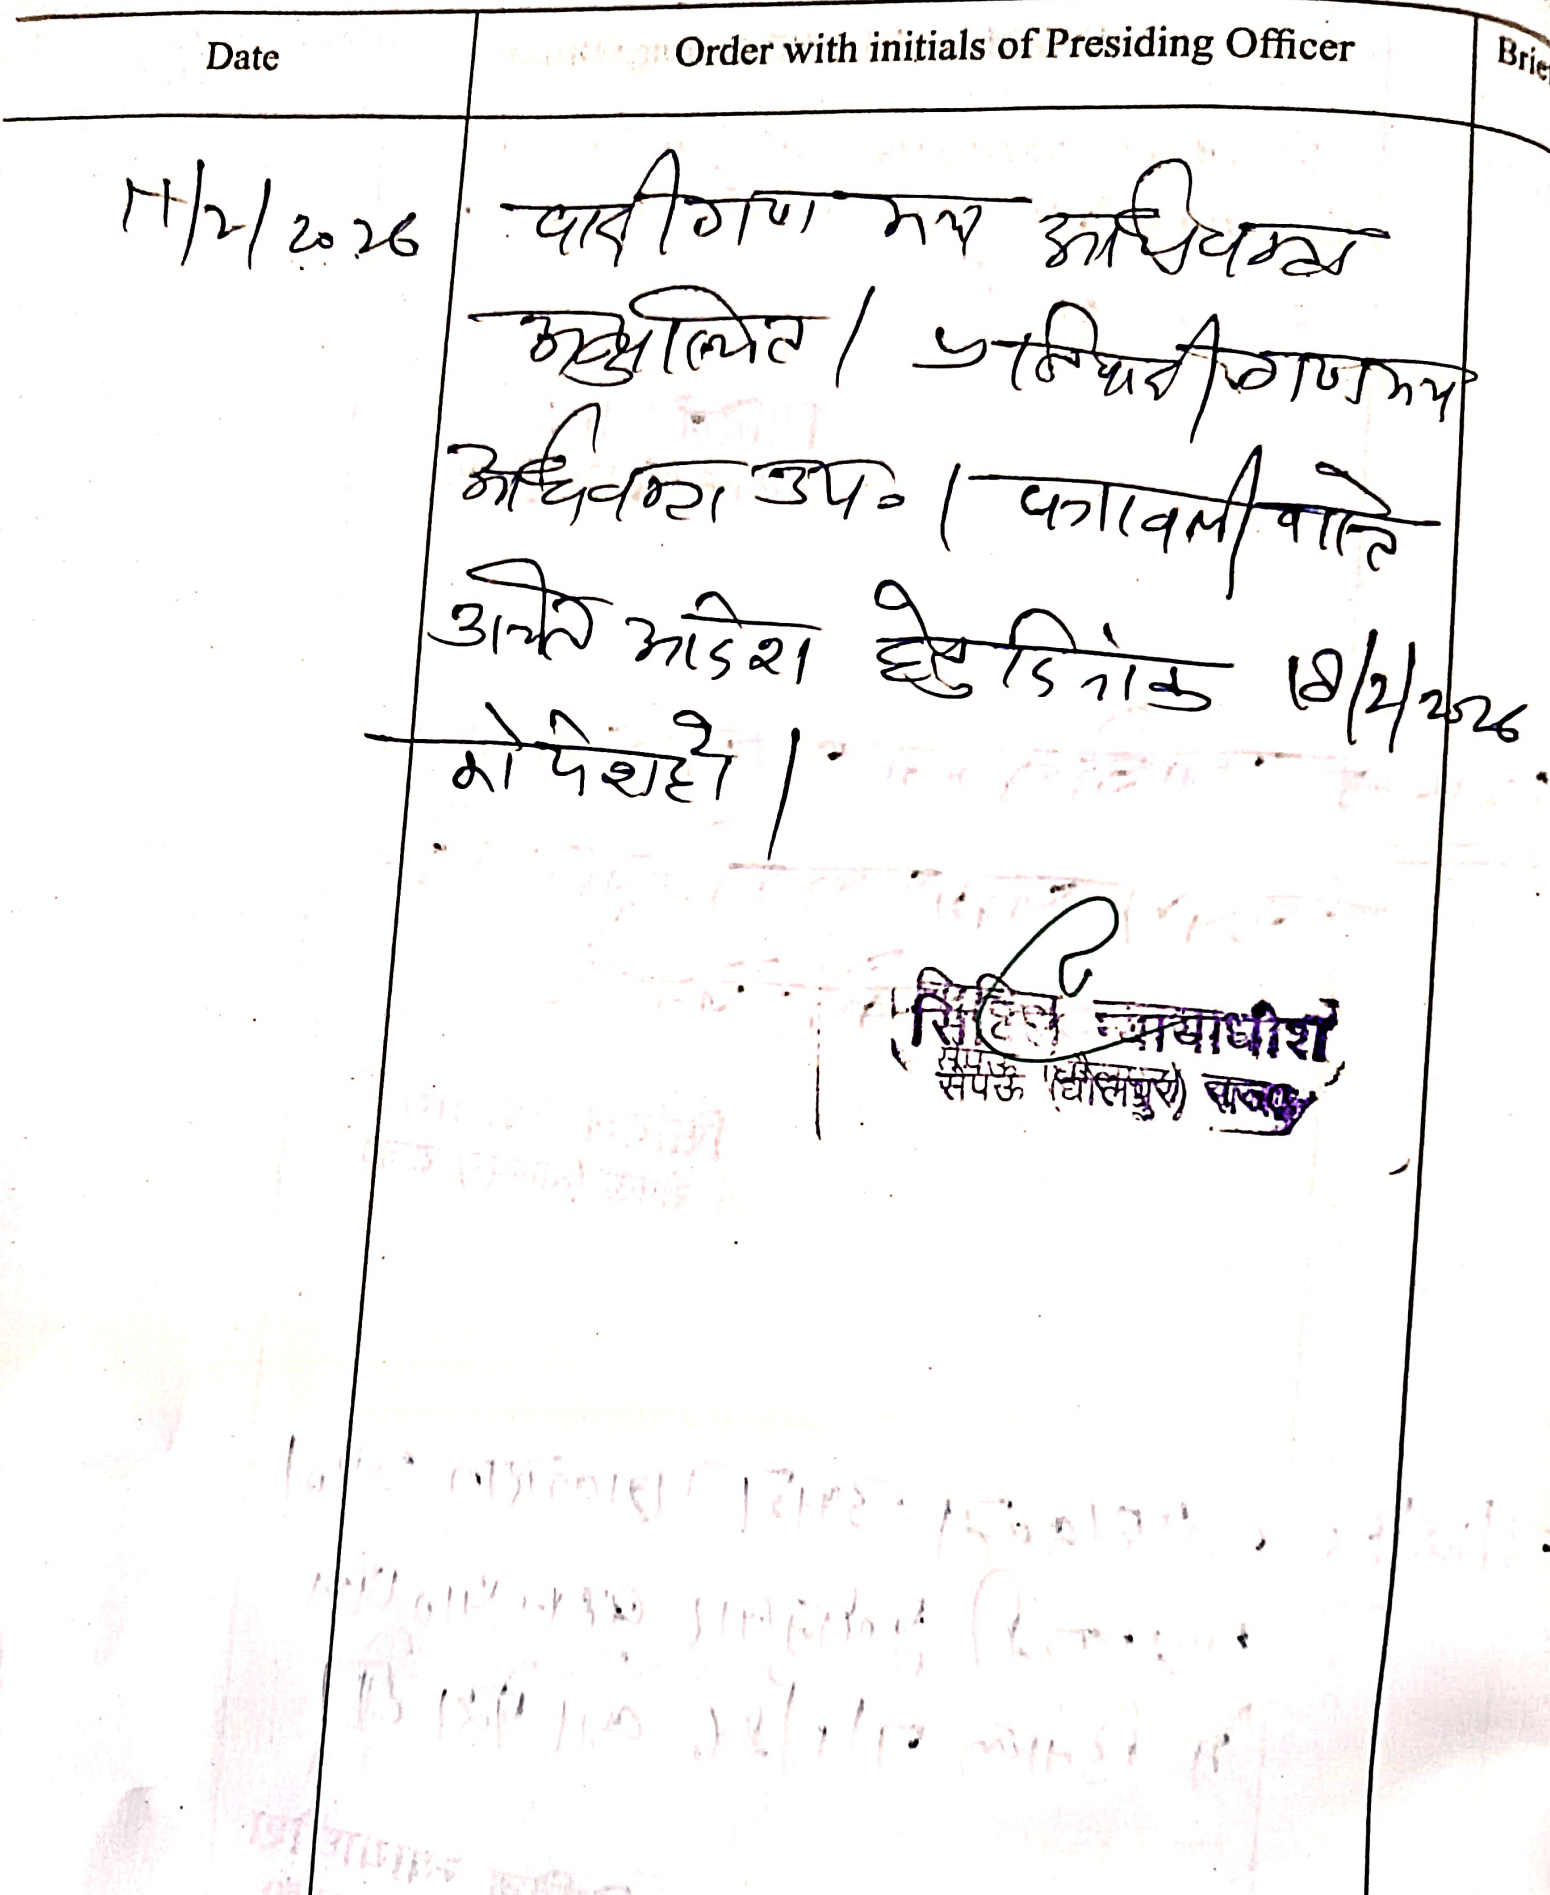 Date Order with initials of Presiding Officer Brie
17/2/2026 वादीगण मय अधिवक्ता
अनुपस्थित । प्रतिवादीगण मय
अधिवक्ता उप॰ । पत्रावली वास्ते
उचित आदेश हेतु दिनांक 18/2/2026
को पेश हो ।
सिविल न्यायाधीश
सैंपऊ (धौलपुर)